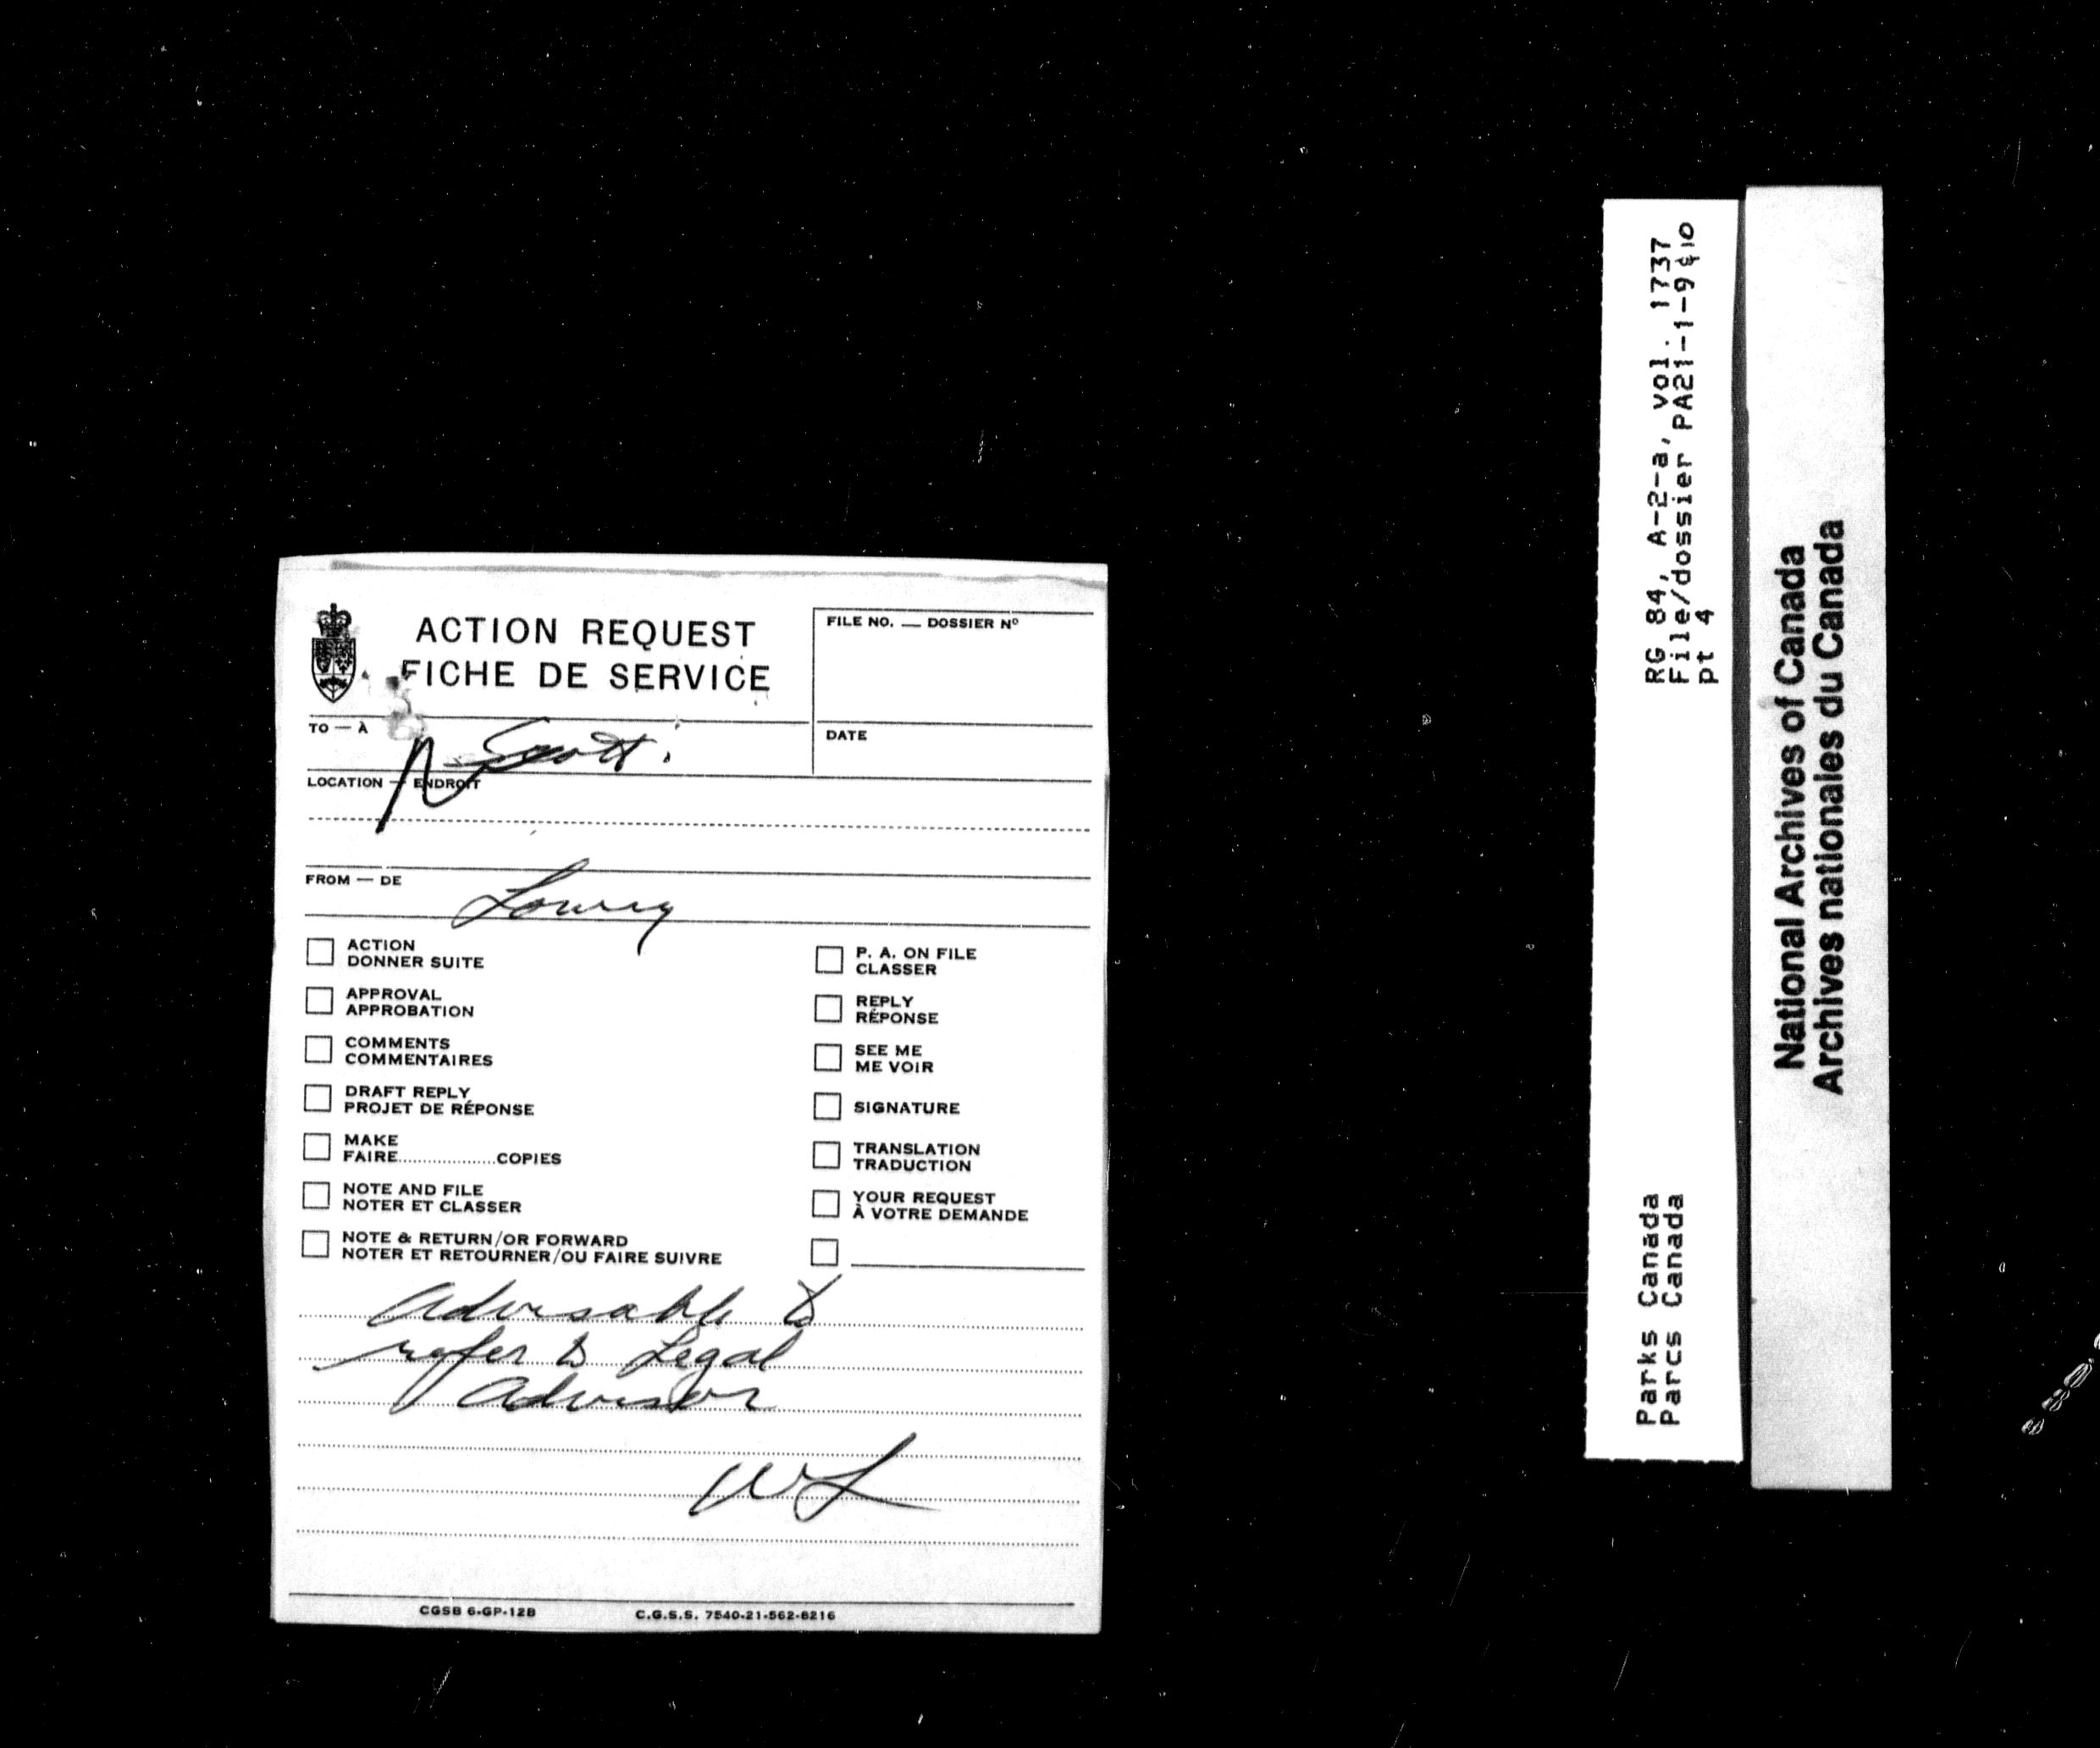 ACTION REQUEST
FICHE DE SERVICE
FILE NO. — DOSSIER Nº
TO — À
Scott.
DATE
LOCATION — ENDROIT
FROM — DE
Lowry
ACTION
DONNER SUITE
APPROVAL
APPROBATION
COMMENTS
COMMENTAIRES
DRAFT REPLY
PROJET DE RÉPONSE
MAKE
FAIRE..................COPIES
NOTE AND FILE
NOTER ET CLASSER
NOTE & RETURN/OR FORWARD
NOTER ET RETOURNER/OU FAIRE SUIVRE
P. A. ON FILE
CLASSER
REPLY
RÉPONSE
SEE ME
ME VOIR
SIGNATURE
TRANSLATION
TRADUCTION
YOUR REQUEST
À VOTRE DEMANDE
Advisable to
refer to Legal
Advisor
WL
CGSB 6-GP-12B
C.G.S.S. 7540-21-562-8216
RG 84, A-2-a, vol. 1737
File/dossier PA21-1-9&10
pt 4
Parks Canada
Parcs Canada
National Archives of Canada
Archives nationales du Canada